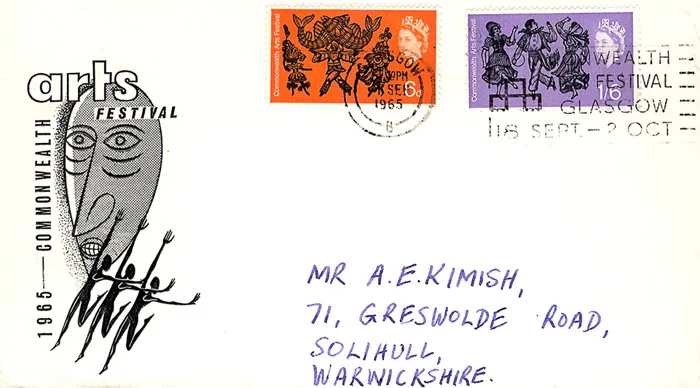 arts
FESTIVAL
1965 — COMMONWEALTH
Commonwealth Arts Festival
6D
Commonwealth Arts Festival
1/6
GLASGOW
PM
SEP
1965
B
WEALTH
FESTIVAL
GLASGOW
18 SEPT. — 2 OCT
MR A.E. KIMISH,
71, GRESWOLDE ROAD,
SOLIHULL,
WARWICKSHIRE.